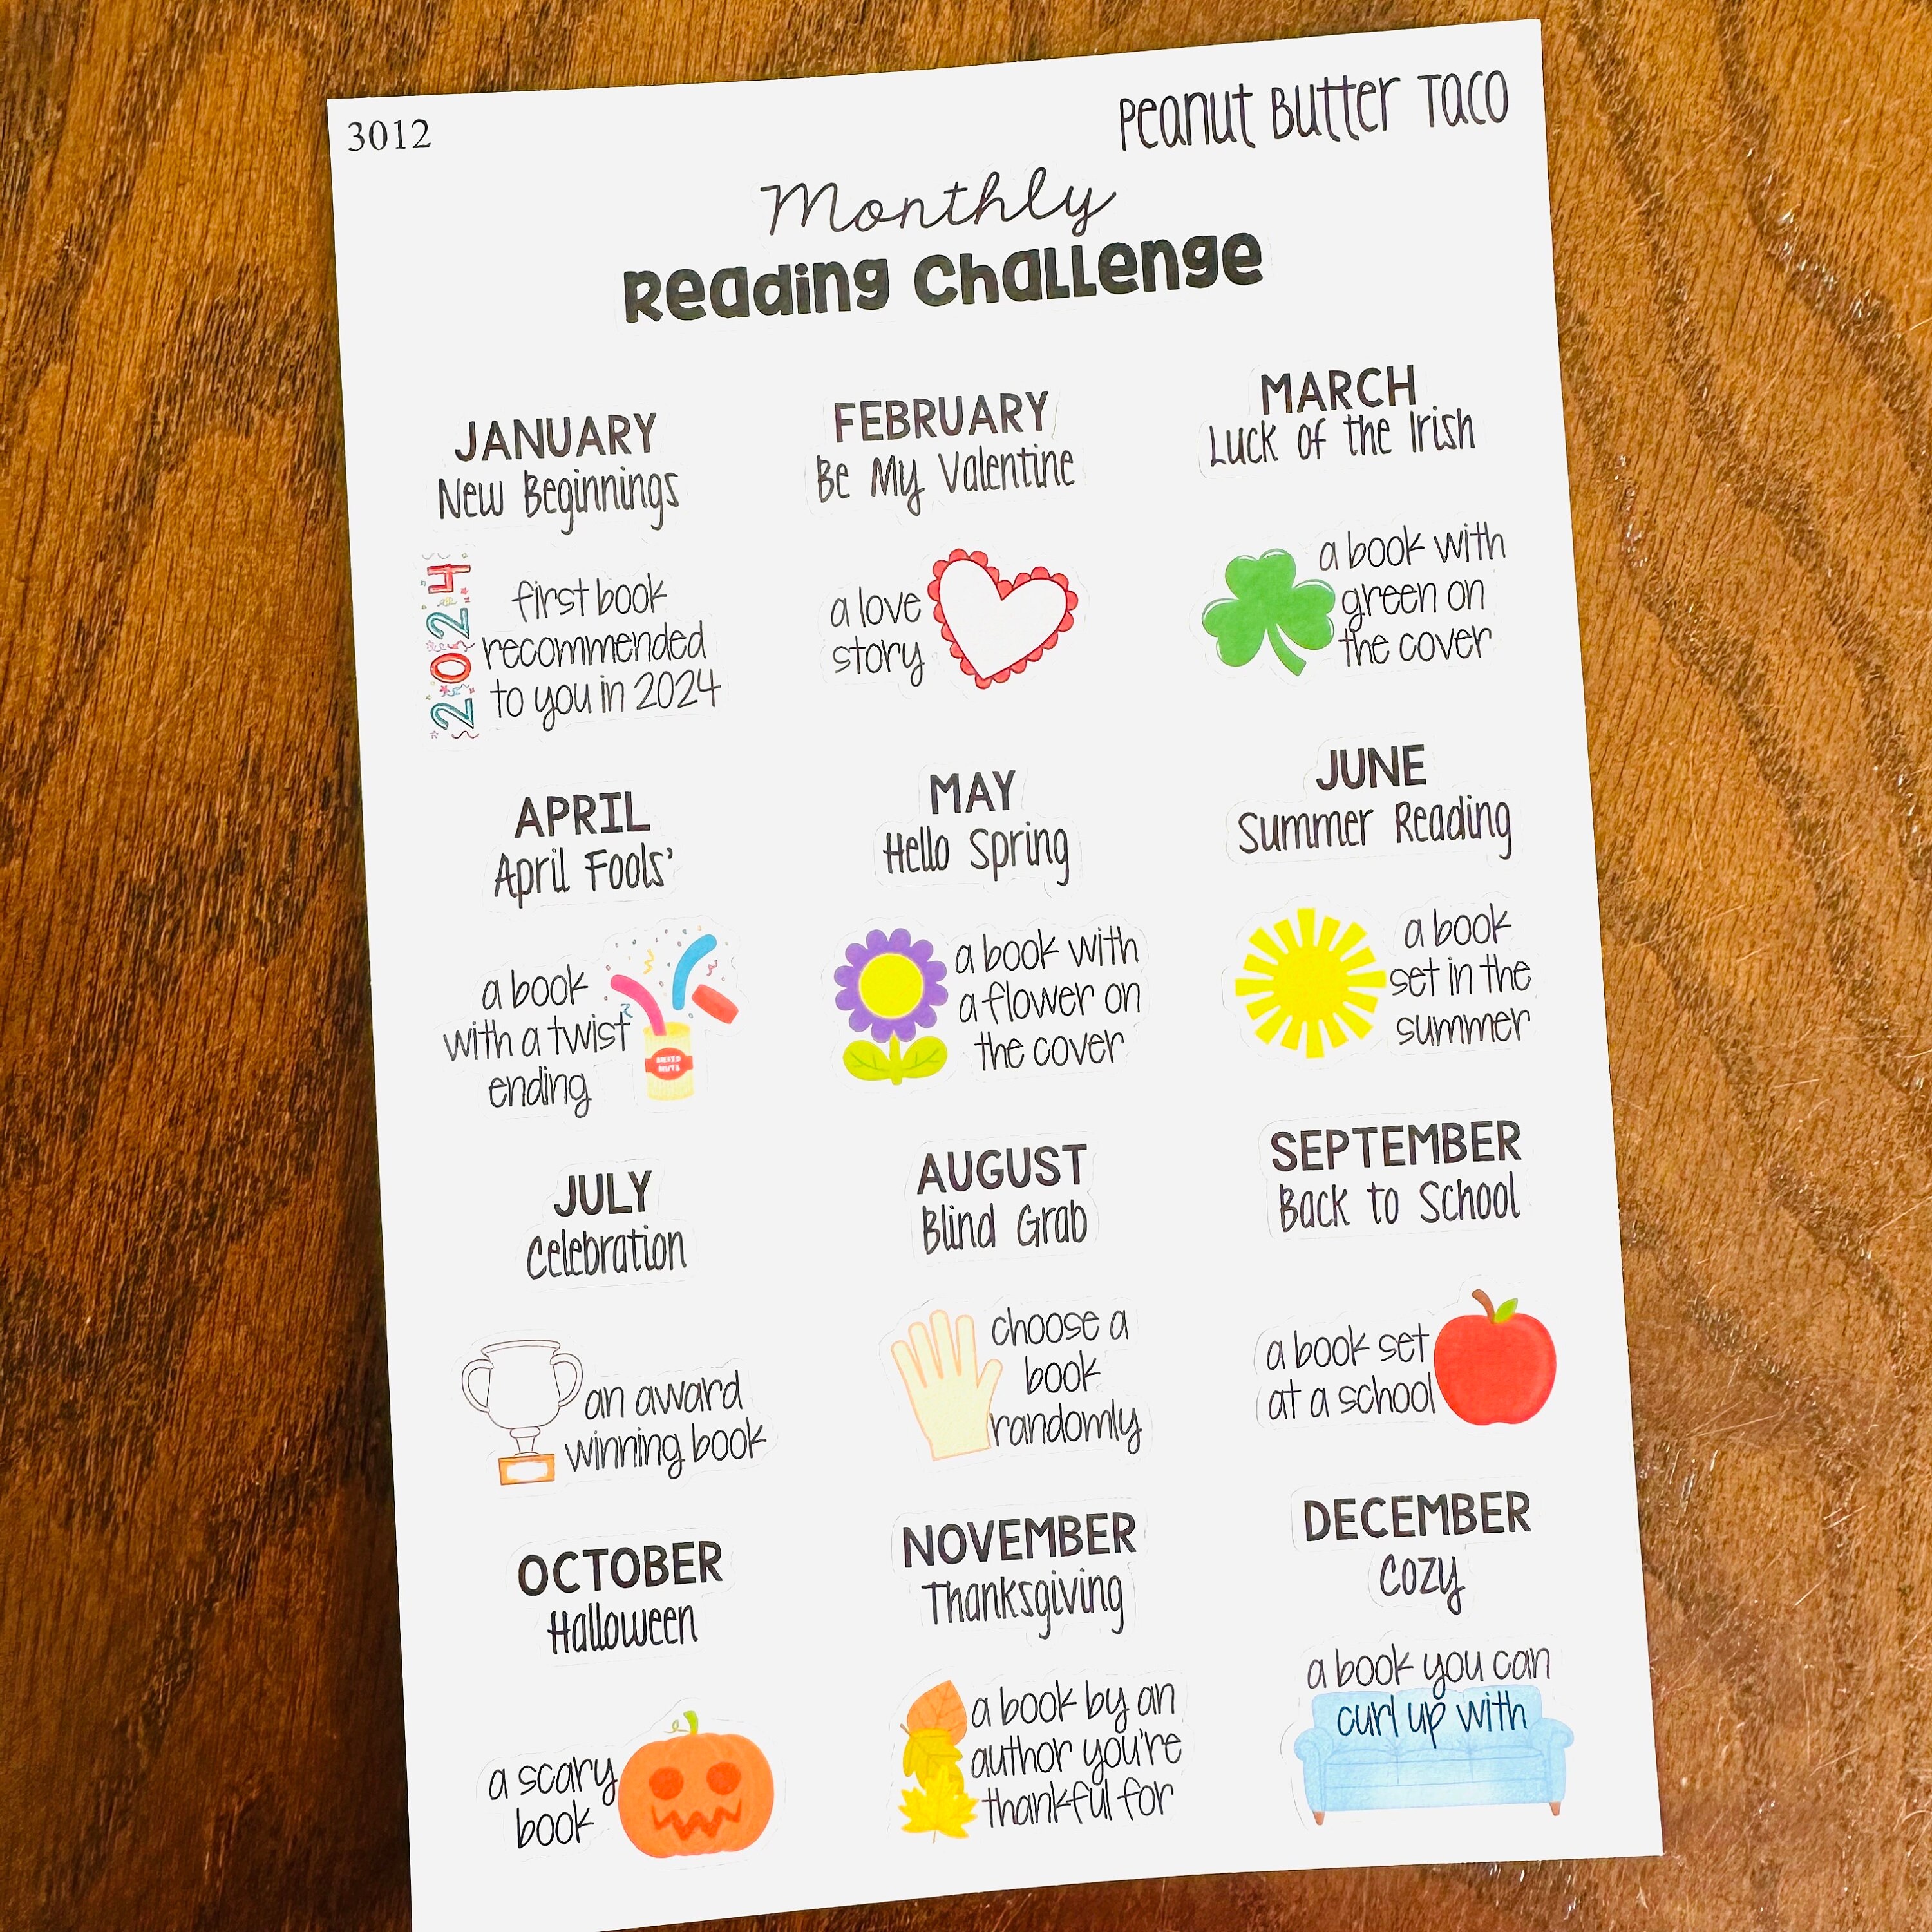 3012
Peanut Butter Taco
Monthly
Reading Challenge
JANUARY
New Beginnings
2024
first book
recommended
to you in 2024
FEBRUARY
Be My Valentine
a love
story
MARCH
Luck of the Irish
a book with
green on
the cover
APRIL
April Fools'
a book
with a twist
ending
MIXED
NUTS
MAY
Hello Spring
a book with
a flower on
the cover
JUNE
Summer Reading
a book
set in the
summer
JULY
Celebration
an award
winning book
AUGUST
Blind Grab
choose a
book
randomly
SEPTEMBER
Back to School
a book set
at a school
OCTOBER
Halloween
a scary
book
NOVEMBER
Thanksgiving
a book by an
author you're
thankful for
DECEMBER
Cozy
a book you can
curl up with